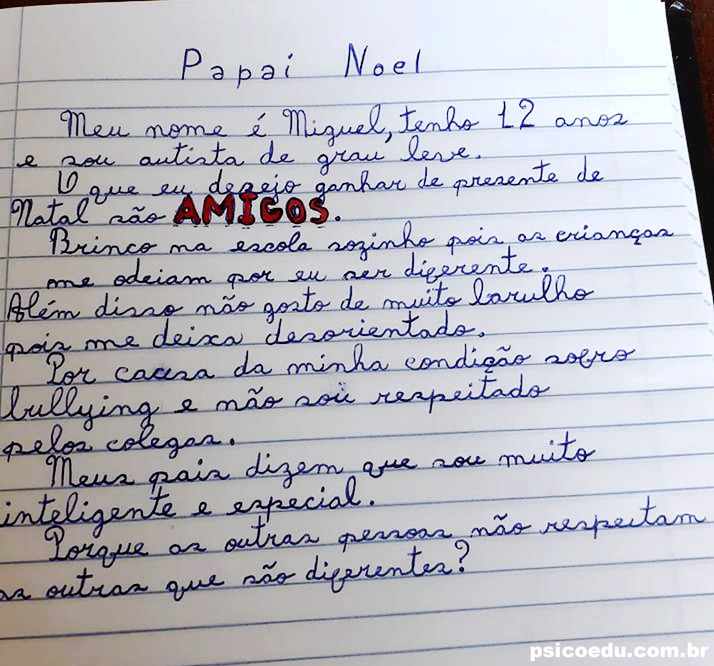 Papai Noel
Meu nome é Miguel, tenho 12 anos
e sou autista de grau leve.
O que eu desejo ganhar de presente de
Natal são AMIGOS.
Brinco na escola sozinho pois as crianças
me odeiam por eu ser diferente.
Além disso não gosto de muito barulho
pois me deixa desorientado.
Por causa da minha condição sofro
bullying e não sou respeitado
pelos colegas.
Meus pais dizem que sou muito
inteligente e especial.
Porque as outras pessoas não respeitam
as outras que são diferentes?
psicoedu.com.br